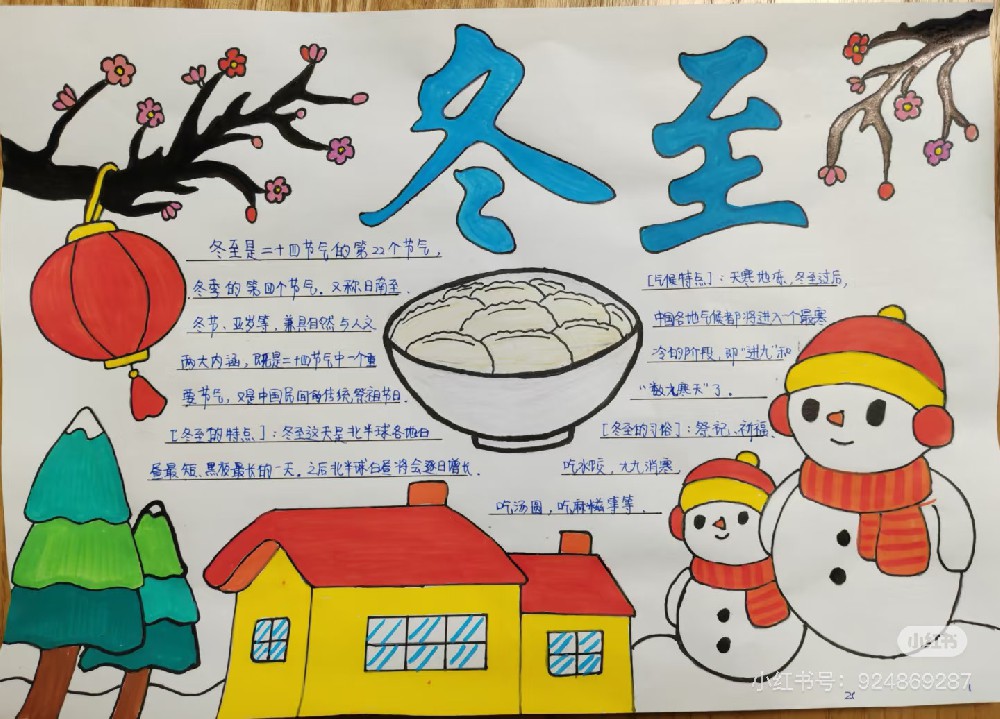 冬至
冬至是二十四节气的第22个节气，
冬季的第四个节气。又称日南至、
冬节、亚岁等，兼具自然与人文
两大内涵，既是二十四节气中一个重
要节气，又是中国民间的传统祭祖节日。
[冬至的特点]：冬至这天是北半球各地白
昼最短、黑夜最长的一天。之后北半球白昼将会逐日增长。
[气候特点]：天寒地冻，冬至过后，
中国各地气候都将进入一个最寒
冷的阶段，即“进九”和
“数九寒天”了。
[冬至的习俗]：祭祀、祈福、
吃水饺，九九消寒，
吃汤圆，吃麻糍事等。
小红书
小红书号：924869287